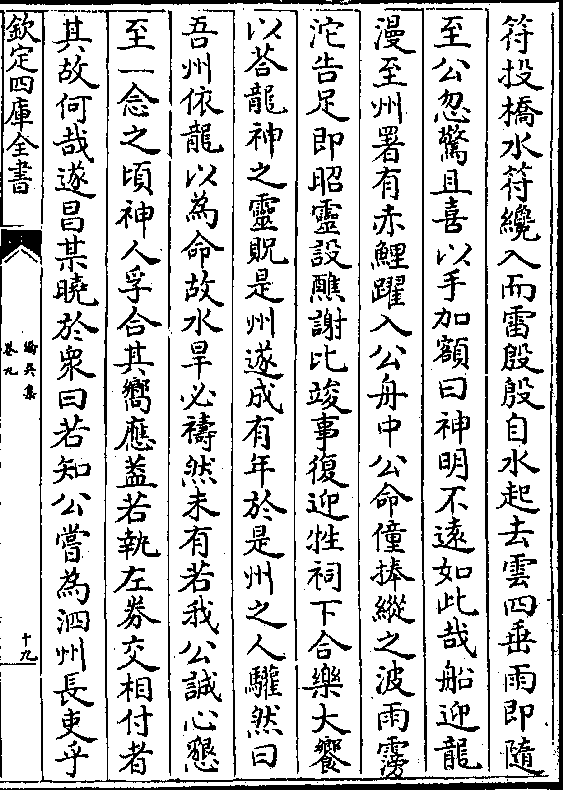 符投橋水符纔入而雷殷殷自水起去雲四垂雨即隨
至公忽驚且喜以手加額曰神明不遠如此哉船迎龍
漫至州署有赤鯉躍入公舟中公命僮捧縱之波雨霶
沱告足即昭靈設醮謝比竣事復迎牲祠下合樂大饗
以荅龍神之靈貺是州遂成有年於是州之人驩然曰
吾州依龍以為命故水旱必禱然未有若我公誠心懇
至一念之頃神人孚合其嚮應葢若執左券交相付者
其故何哉遂昌某曉於衆曰若知公嘗為泗州長吏乎
欽定四庫全書
僑吳集
卷九
十九